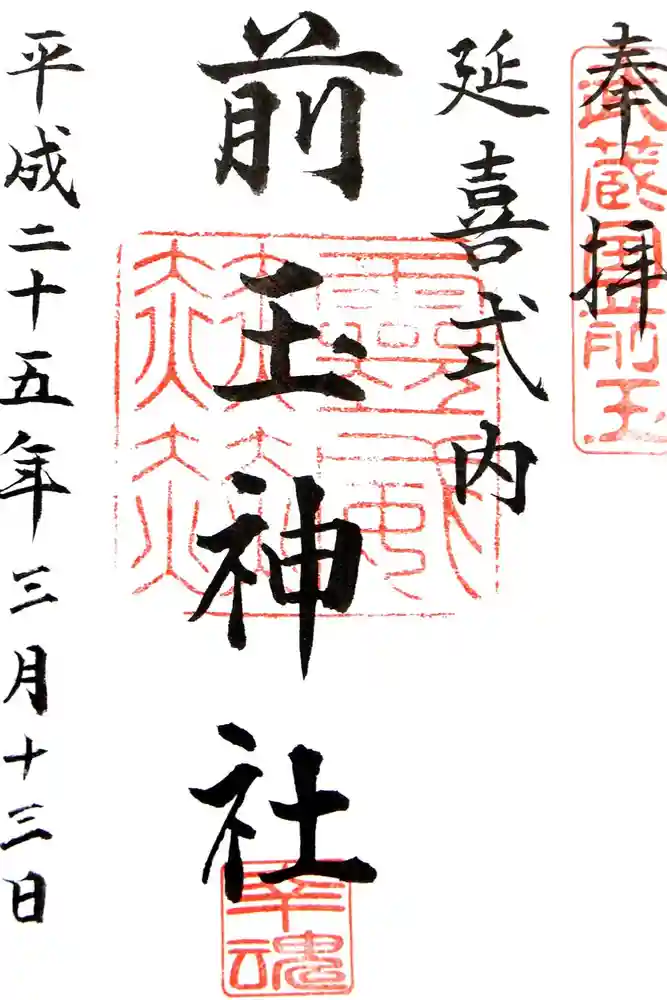 奉拝
武蔵国前玉
延喜式内
前玉神社
幸魂
平成二十五年三月十三日